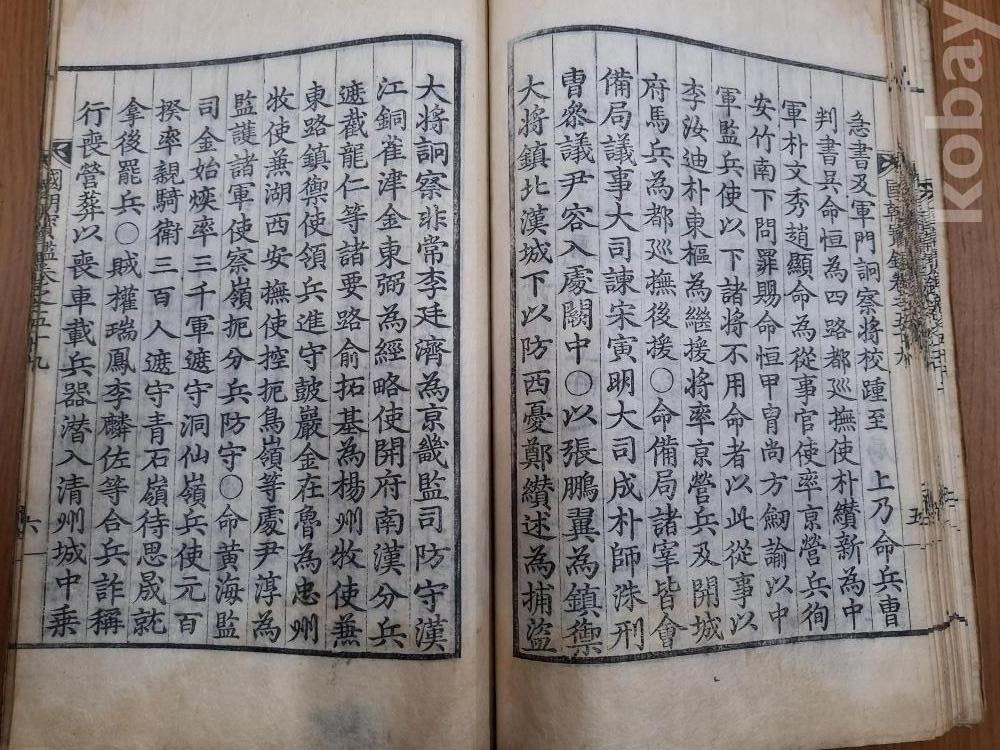 急書及軍門詗察將校踵至 上乃命兵曹
判書吳命恒為四路都巡撫使朴纘新為中
軍朴文秀趙顯命為從事官使率京營兵徇
安竹南下問罪賜命恒甲胄尚方劒諭以中
軍監兵使以下諸將不用命者以此從事以
李汝迪朴東樞為繼援將率京營兵及開城
府馬兵為都巡撫後援○命備局諸宰皆會
備局議事大司諫宋寅明大司成朴師洙刑
曹叅議尹容入處闕中○以張鵬翼為鎮禦
大將鎮北漢城下以防西憂鄭纘述為捕盜
五
大將詗察非常李廷濟為京畿監司防守漢
江銅雀津金東弼為經略使開府南漢分兵
遮截龍仁等諸要路俞拓基為楊州牧使兼
東路鎮禦使領兵進守鼓巖金在魯為忠州
牧使兼湖西安撫使控扼鳥嶺等處尹淳為
監護諸軍使察嶺扼分兵防守○命黃海監
司金始煐率三千軍遮守洞仙嶺兵使元百
揆率親騎衛三百人遮守青石嶺待思晟就
拿後罷兵○賊權瑞鳳李麟佐等合兵詐稱
行喪營葬以喪車載兵器潛入清州城中乗
國朝寶鑑卷之五十九
六
kobay